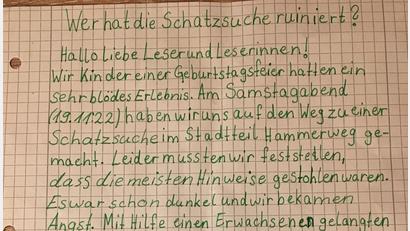 Wer hat die Schatzsuche ruiniert?
Hallo liebe Leser und Leserinnen!
Wir Kinder einer Geburtstagsfeier hatten ein
sehr blödes Erlebnis. Am Samstagabend
(19.11.22) haben wir uns auf den Weg zu einer
Schatzsuche im Stadtteil Hammerweg ge-
macht. Leider mussten wir feststellen,
dass die meisten Hinweise gestohlen waren.
Es war schon dunkel und wir bekamen
Angst. Mit Hilfe einen Erwachsenen gelangten